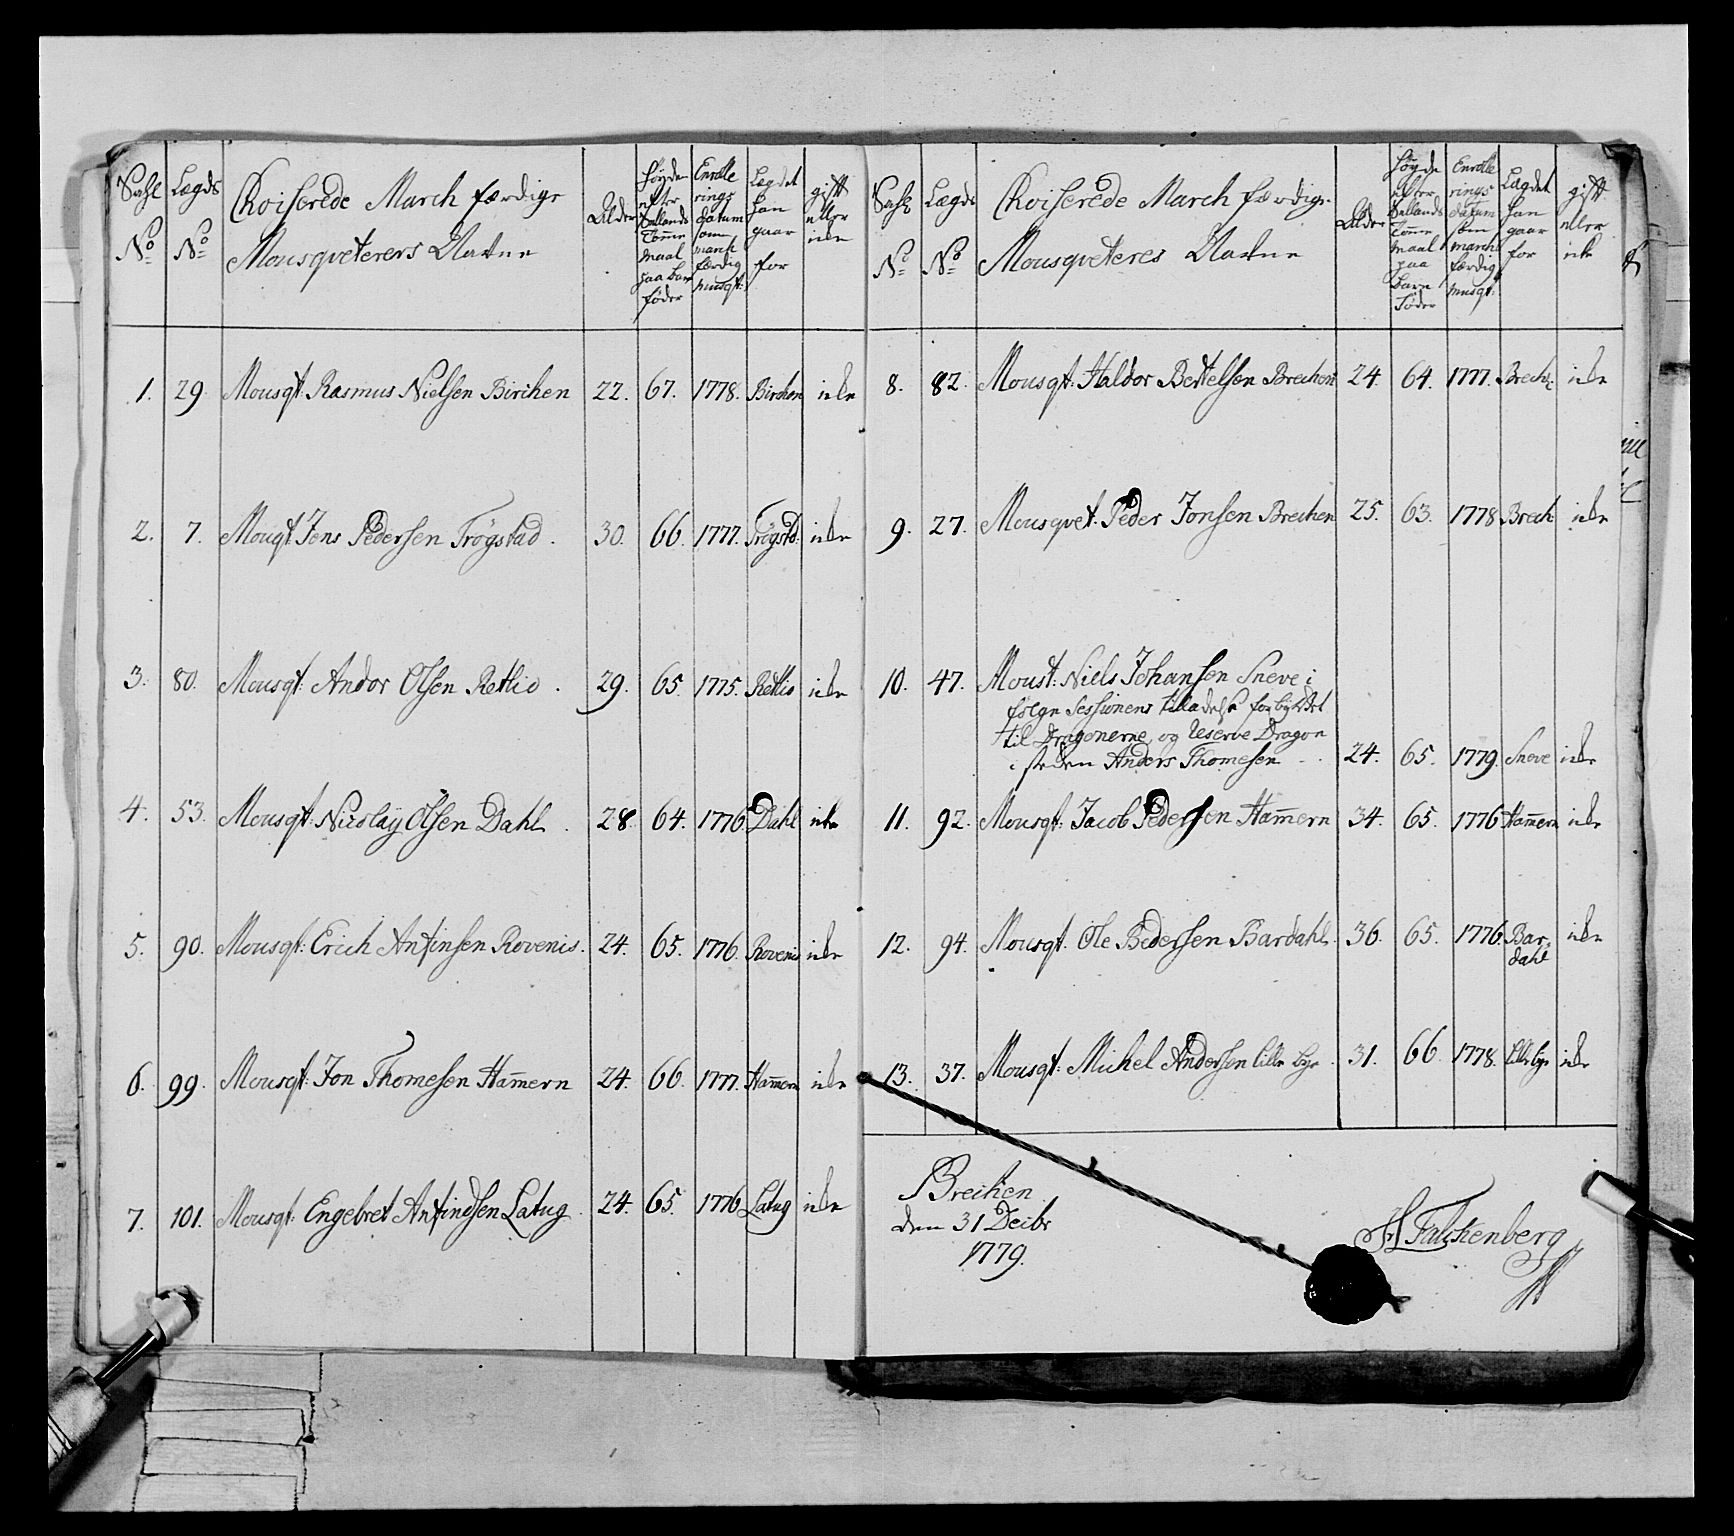 Tahl No | Lægds No | Choiserede March færdige Mousqveterers Nafne | Alder | Høyde efter Sællands Tomme Maal paa bare føder | Enrolle rings datum som march færdig Musqt: | Lægdet han gaar for | gift eller icke
1. | 29. | Mousqt: Rasmus Nielsen Birchen | 22. | 67. | 1778. | Birchen | icke
2. | 7. | Mouqt Jens Pedersen Trøgstad. | 30. | 66. | 1777. | Trøgstd: | icke
3. | 80. | Mousqt: Andor Olsen Retlio. | 29. | 65. | 1775. | Retlio | icke
4. | 53. | Mousqt: Nicolaÿ Olsen Dahl. | 28. | 64. | 1776. | Dahl | icke
5. | 90. | Mousqt: Erich Anfinsen Rovenis. | 24. | 65. | 1776. | Rovenis | icke
6. | 99. | Mousqt: Jon Thomesen Ham̄ern | 24. | 66. | 1777. | Ham̄ern | icke
7. | 101. | Mousqt: Engebret Anfindsen Latug. | 24. | 65. | 1776 | Latug | icke
Tahl No | Lægds No | Choiserede March færdige Mousqveteres Nafne | Alder | Høyde efter Sællands Tomme Maal paa bare Føder | Enrolle rings datum som march færdig Musqt: | Lægdet han gaar for | gift eller icke
8. | 82. | Mousqt: Haldor Bertelsen Brechen | 24. | 64. | 1777. | Brech: | icke
9. | 27. | Mousqvet: Peder Jonsen Brechen | 25. | 63. | 1778 | Brech | icke
10. | 47. | Moust: Niels Johansen Sneve i
følge Sessionens tilladelse forbyttet
til Dragonerne, og Reserve Dragon
i steden Anders Thomesen - . | 24. | 65. | 1779. | Sneve | icke
11. | 92. | Mousqt: Jacob Pedersen Ham̄ern | 34. | 65. | 1776 | Ham̄ern | icke
12. | 94. | Mousqt. Ole Pedersen Bardahl. | 36. | 65. | 1776. | Bar-
dahl | icke
13. | 37. | Mousqt: Michel Andersen Lille bye. | 31. | 66. | 1778. | Lillebye | icke
Brecken
den 31 Decbr
1779.
H Falchenberg